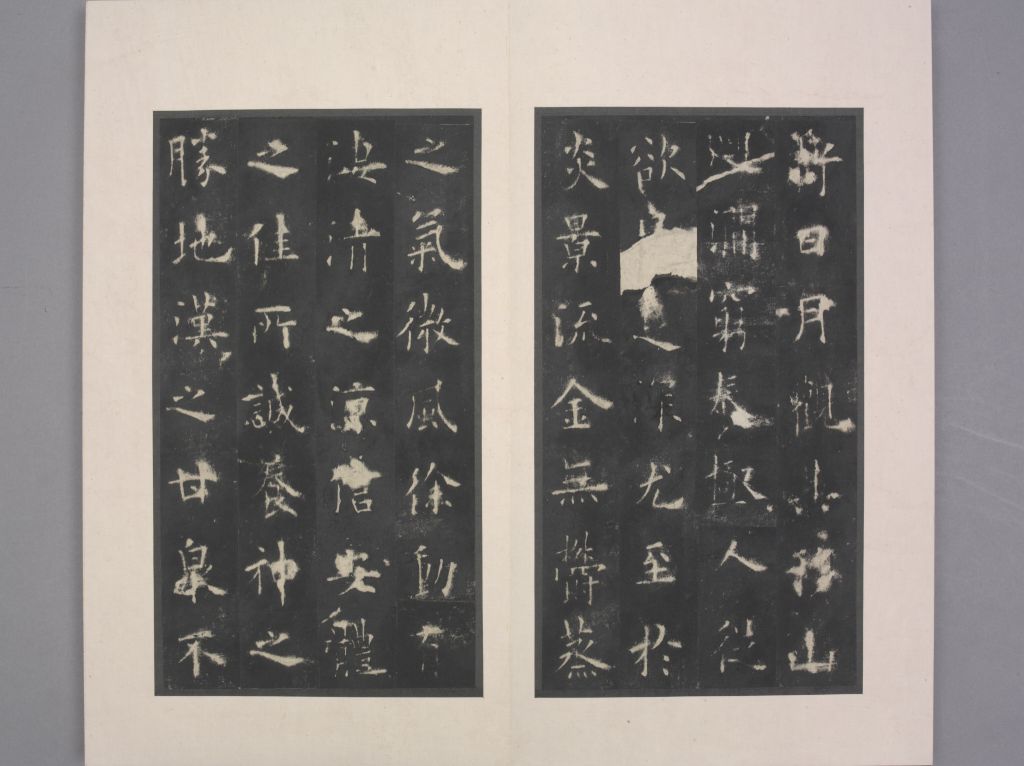 虧日月觀其移山
迴澗窮泰極人從
欲足深尤至於
炎景流金無欝蒸
之氣微風徐動有
淒清之涼信安體
之佳所誠養神之
勝地漢之甘泉不